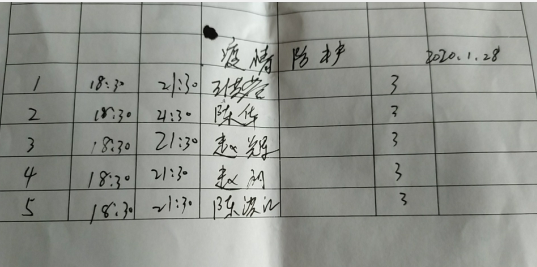 疫情防护 2020.1.28
1 18:30 21:30 3
2 18:30 21:30 陈华 3
3 18:30 21:30 赵 3
4 18:30 21:30 赵丽 3
5 18:30 21:30 陈 3